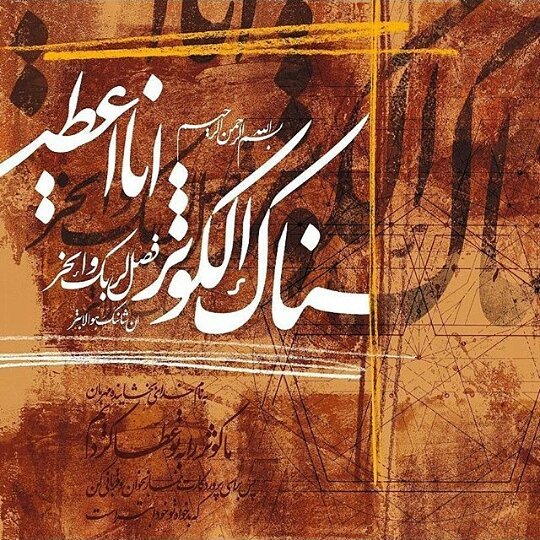 بسم الله الرحمن الرحیم
انا اعطیناک الکوثر
فصل لربک و انحر
ان شانئک هو الابتر
به نام خداوند بخشاینده مهربان
ما کوثر را به تو عطا کردیم
پس برای پروردگارت نماز بخوان و قربانی کن
که بدخواه تو خود ابتر است